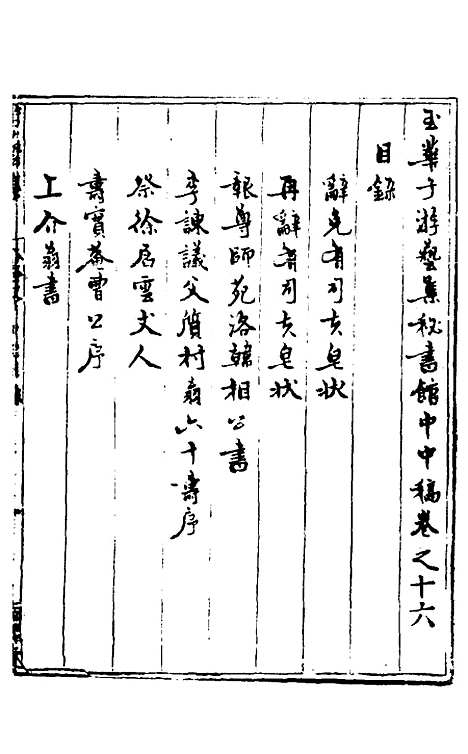 玉華子游藝集秘書館中中稿卷之十六
目錄
辭免有司去皂狀
再辭有司去皂狀
報尊師苑洛韓相公書
李諫議父質村翁六十壽序
祭徐居雲丈人
壽實菴曹公序
上介翁書